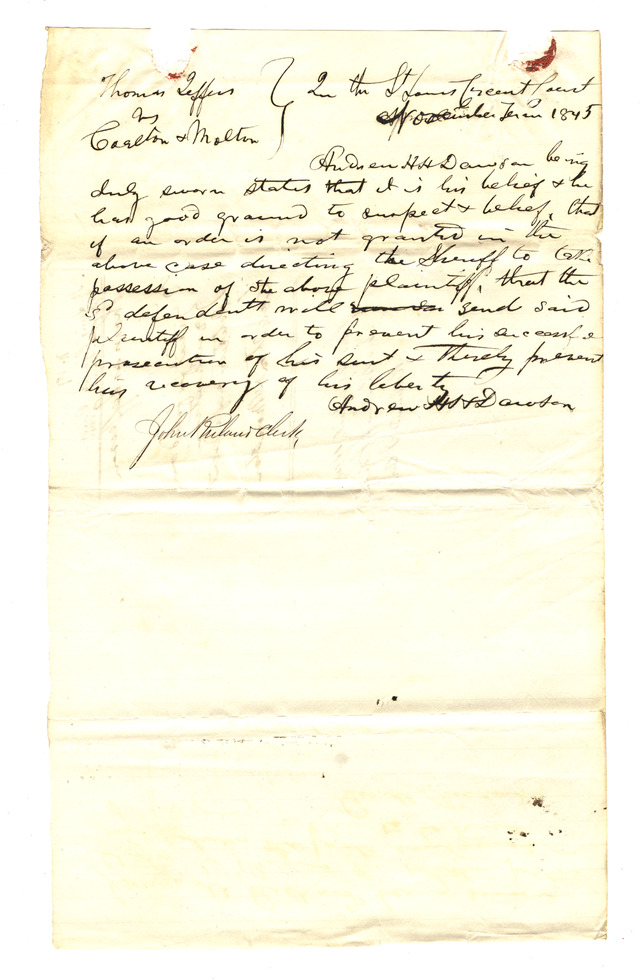 Thomas Jeffers } In the St Louis Circuit Court
vs November Term 1845
Coalton & Molton
Andrew H H Dawson being
duly sworn states that it is his belief & he
has good ground to suspect & belief, that
if an order is not granted in the
above case directing the Sheriff to take
possession of the above plaintiff, that the
sd defendants will send said
plaintiff in order to prevent his successful
prosecution of his suit & thereby prevent
his recovery of his liberty
Andrew H H Dawson
John Ruland Clerk,